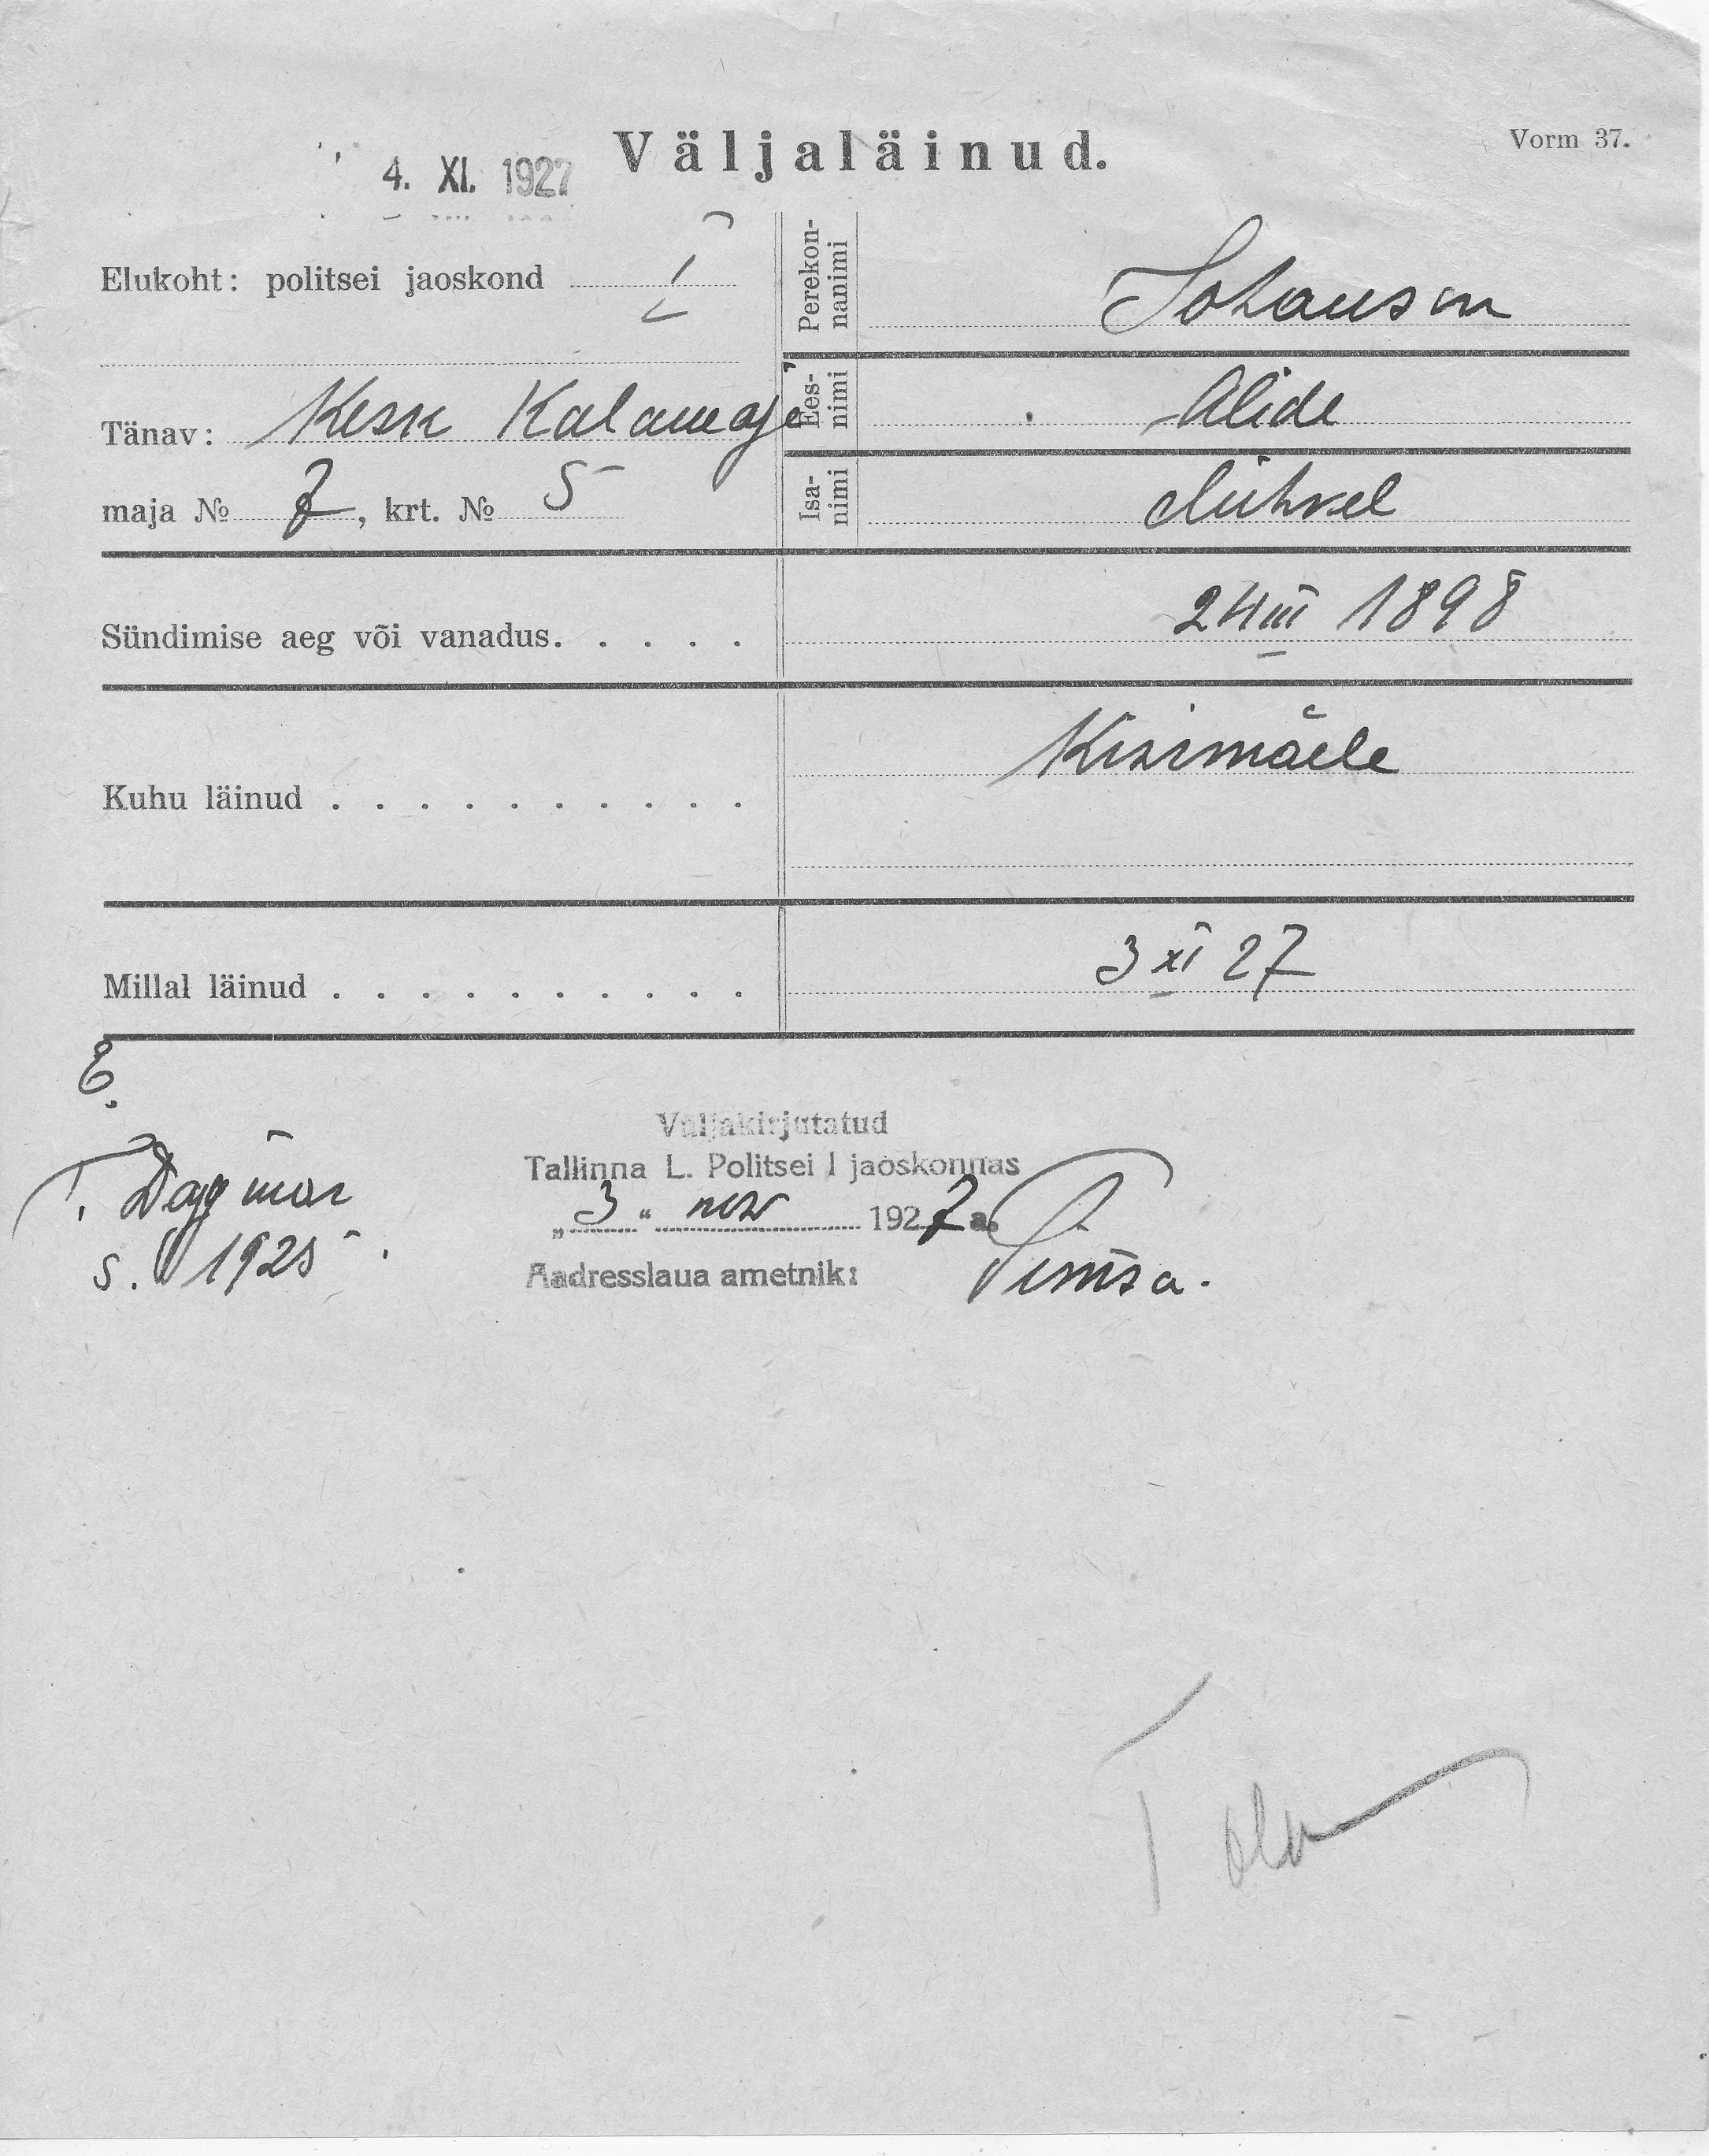 Väljaläinud.
Vorm 37.
4. XI. 1927
Elukoht: politsei jaoskond I
Perekon-
nanimi
Johanson
Tänav: Kesk Kalamaja
Ees-
nimi
Alide
maja № 7, krt. № 5
Isa-
nimi
Mihkel
Sündimise aeg või vanadus. . . . . 24 III 1898
Kuhu läinud . . . . . . . . . .
Millal läinud . . . . . . . . . . 3 XI 27
E.
T. Dagmar
s. 1925.
Väljakirjutatud
Tallinna L. Politsei I jaoskonnas
„3“ nov 1927 a.
Aadresslaua ametnik: